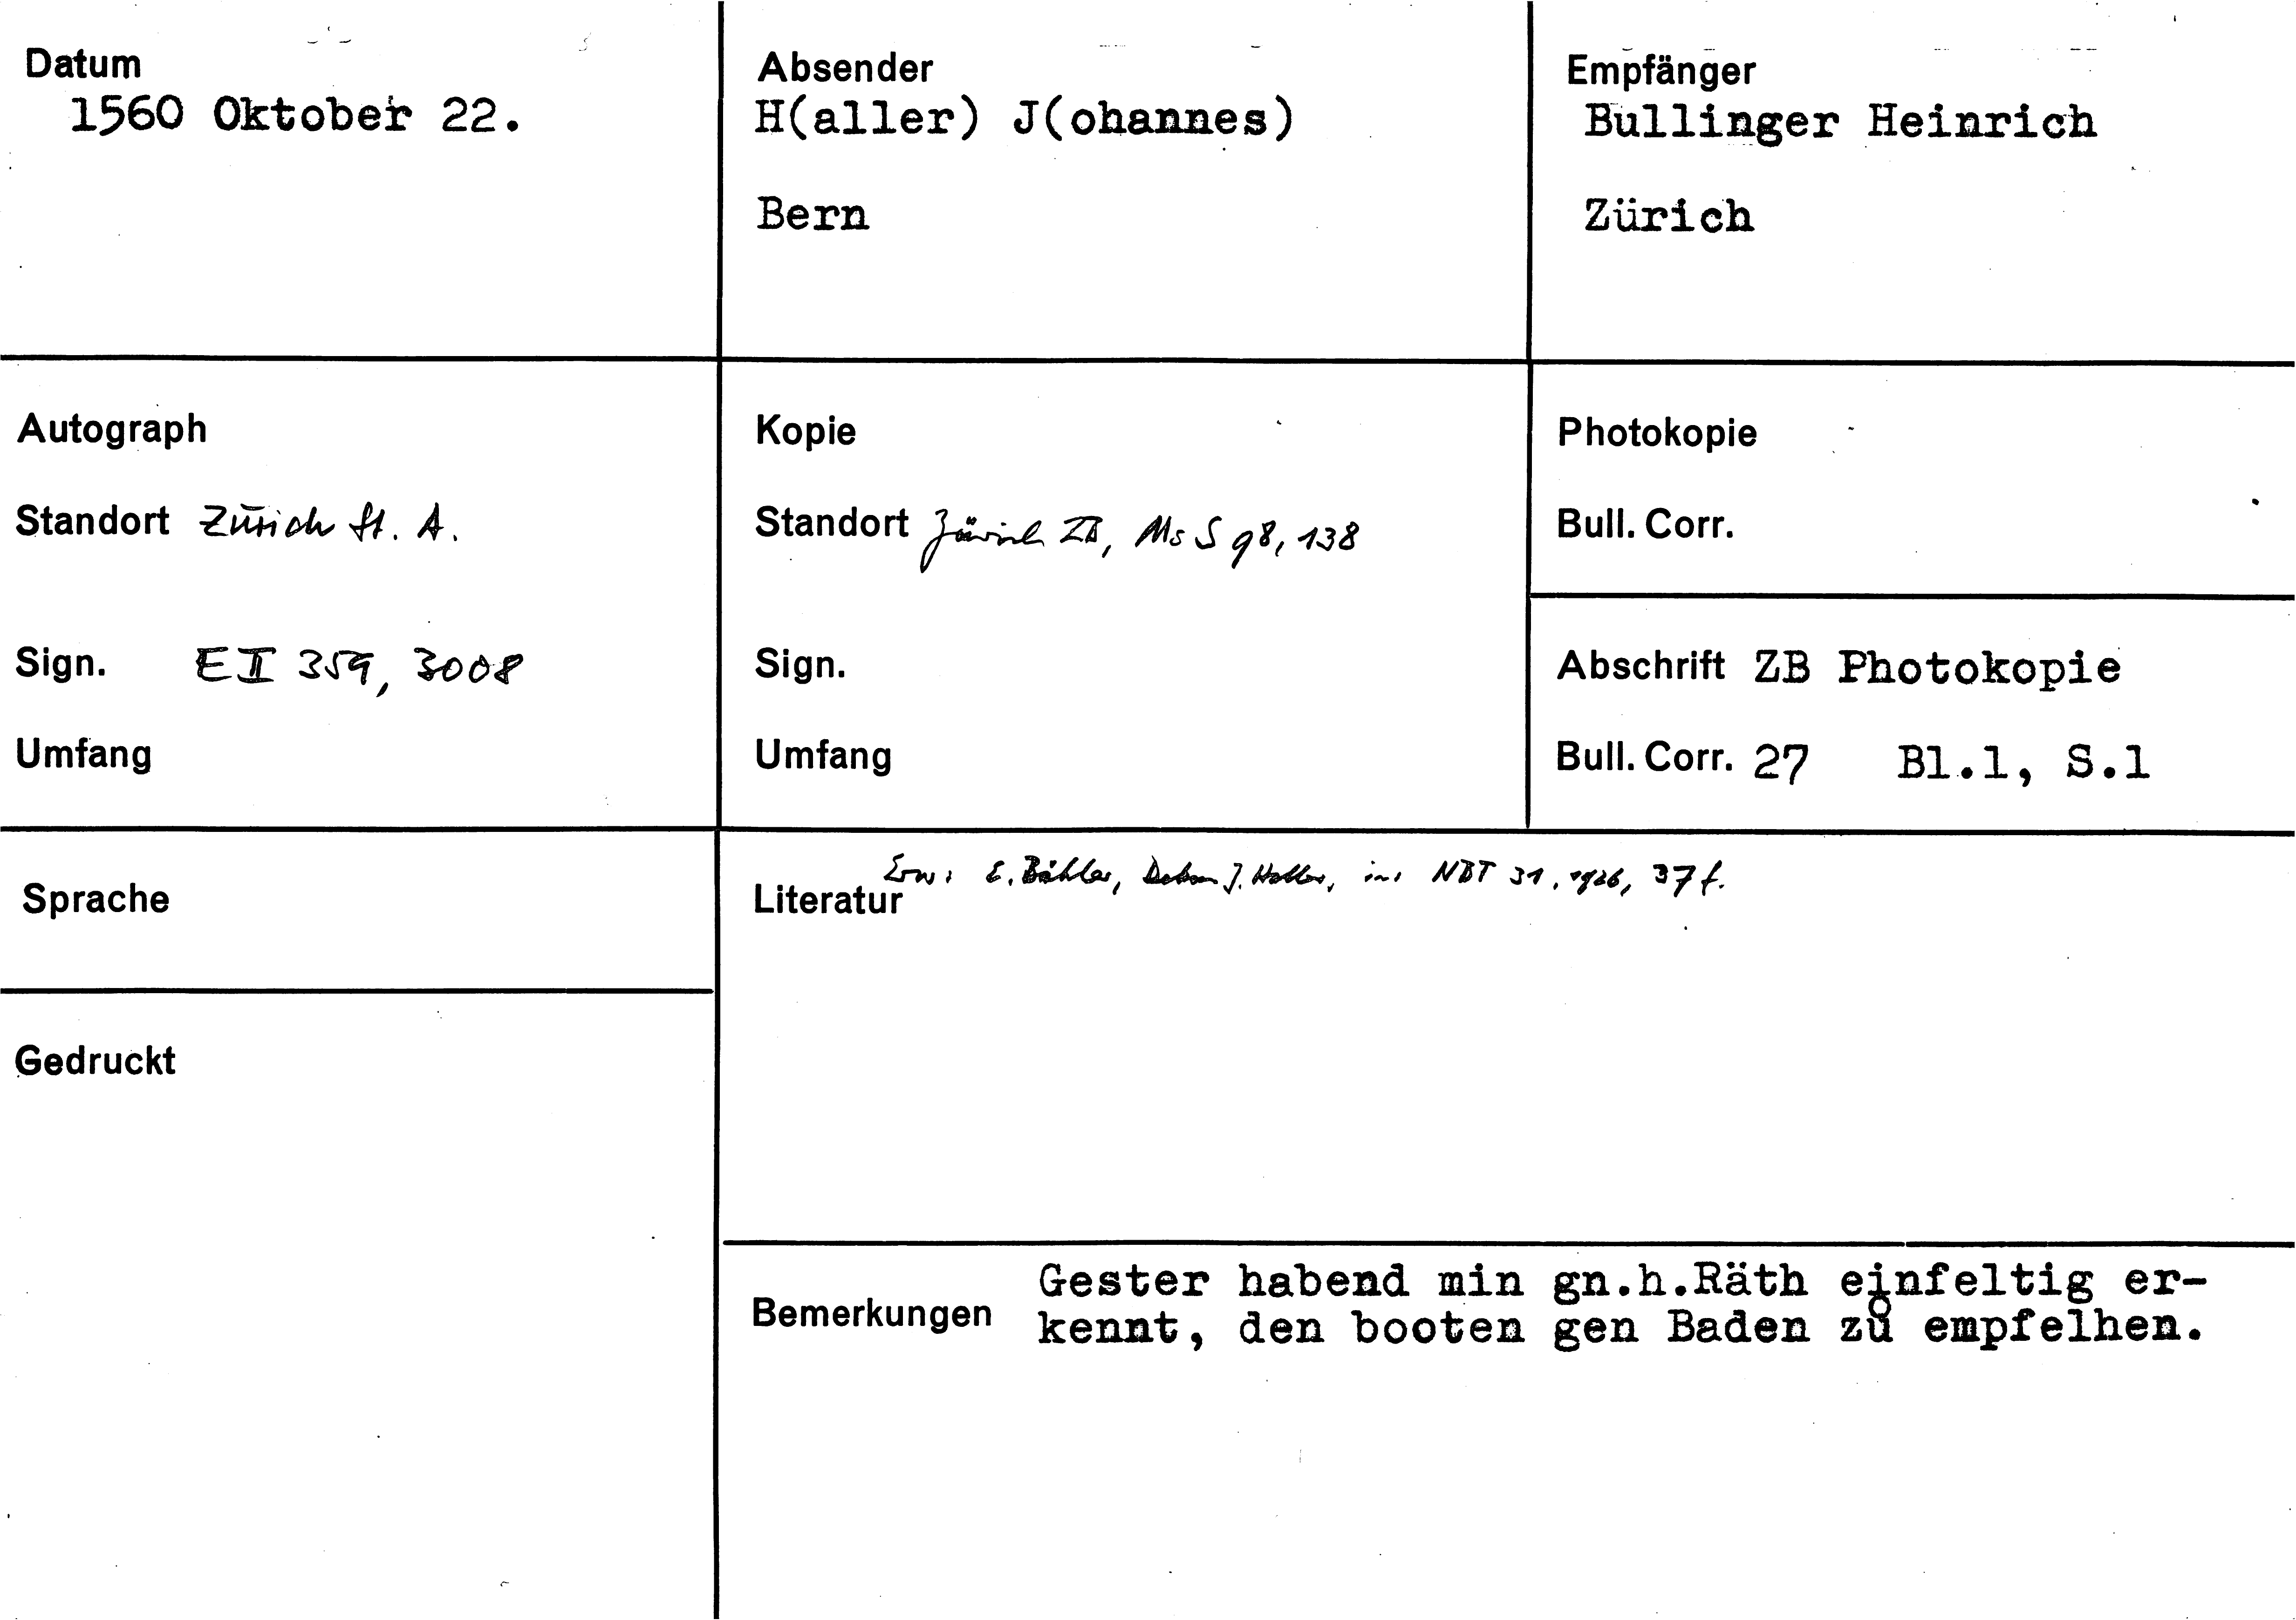 Datum
1560 Oktober 22.
Absender
H(aller) J(ohannes)
Bern
Empfänger
Bullinger Heinrich
Zürich
Autograph
Standort Zürich St. A.
Sign. E II 359, 3008
Umfang
Kopie
Standort Zürich ZB, Ms S 98, 138
Sign.
Umfang
Photokopie
Bull. Corr.
Abschrift ZB Photokopie
Bull. Corr. 27 Bl.1, S.1
Sprache
Gedruckt
Erw: E. Bähler, Dekan J. Haller, in: NBT 31, 1926, 37 f.
Literatur
Bemerkungen
Gester habend min gn.h.Räth einfeltig er-
kennt, den booten gen Baden zů empfelhen.